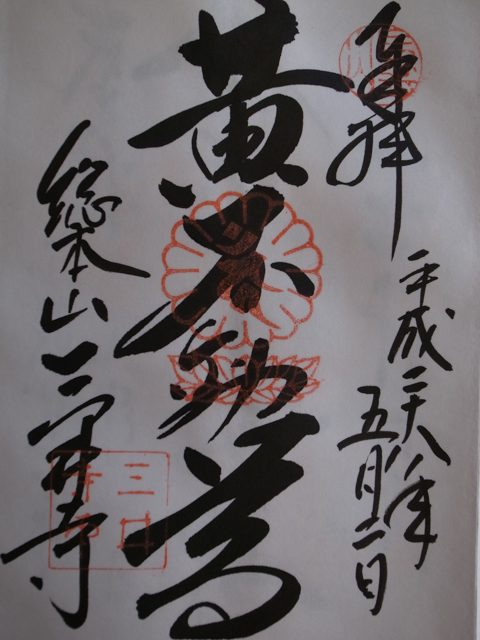 奉拝
平成二十八年
五月二日
黄不動尊
総本山三井寺
三井
寺印